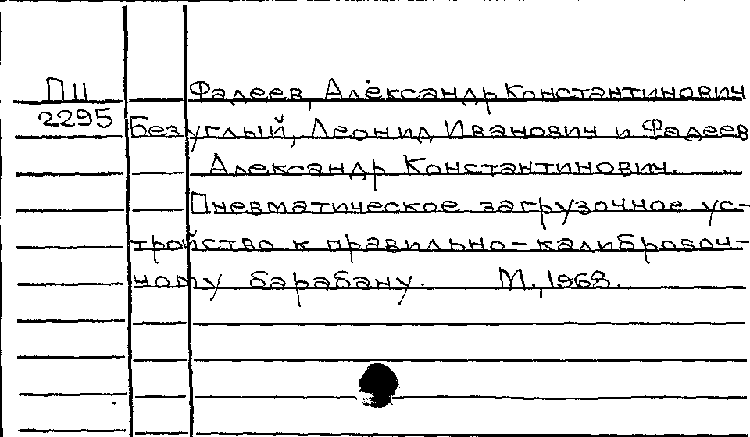 П11
2295
Фадеев, Александр Константинович
Безуглый, Леонид Иванович и Фадеев
Александр Константинович.
Пневматическое загрузочное ус-
тройство к правильно-калибровоч-
ному барабану. М., 1968.